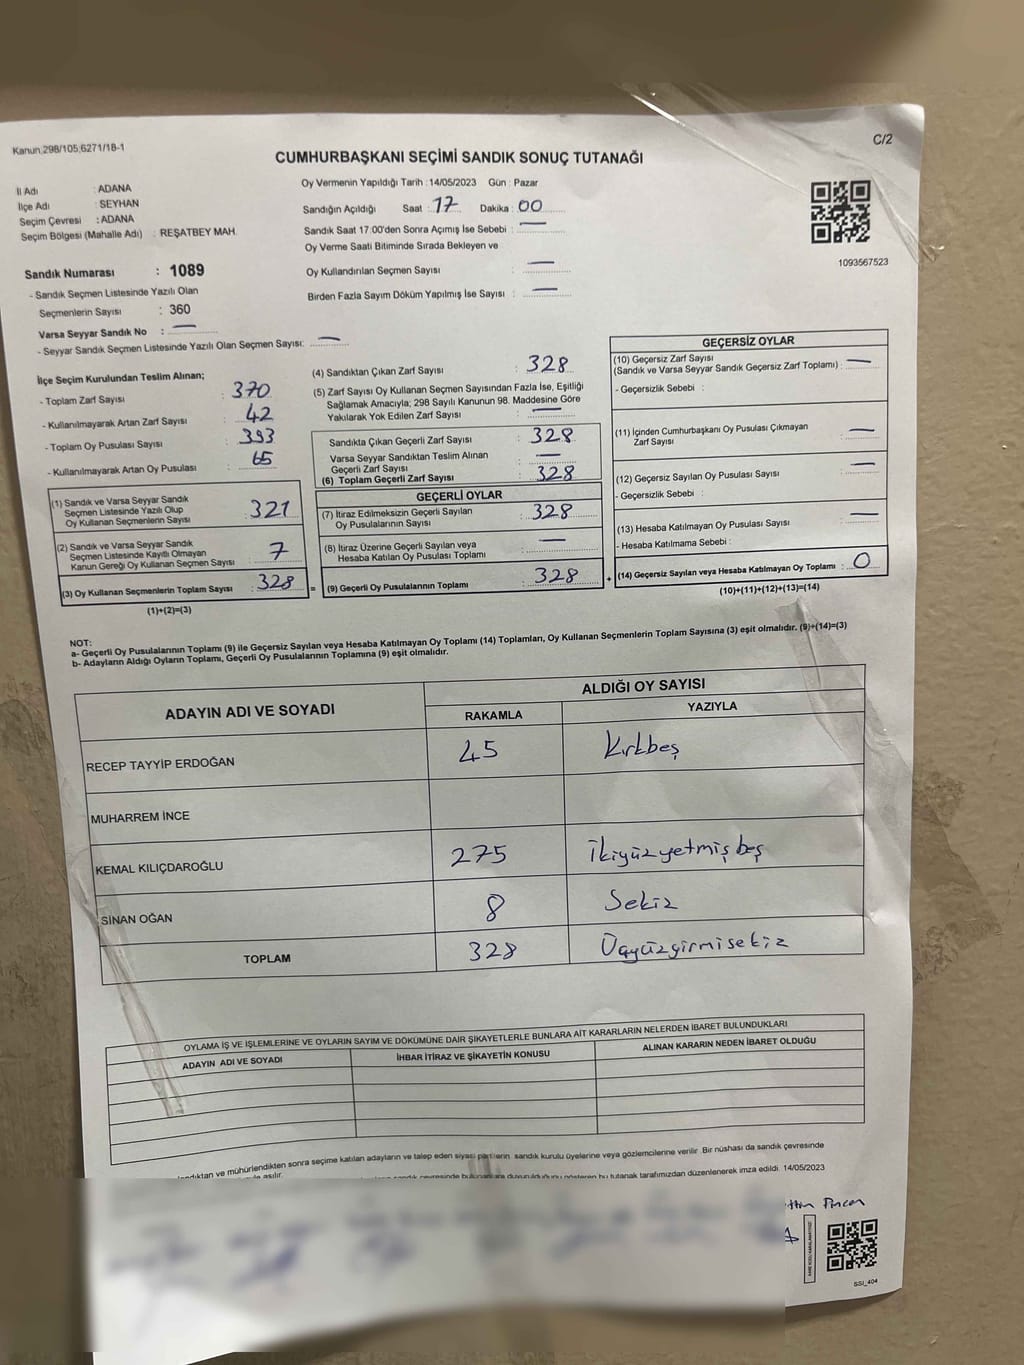 Kanun;298/105;6271/18-1
C/2
CUMHURBAŞKANI SEÇİMİ SANDIK SONUÇ TUTANAĞI
İl Adı : ADANA
İlçe Adı : SEYHAN
Seçim Çevresi : ADANA
Seçim Bölgesi (Mahalle Adı) : REŞATBEY MAH.
Sandık Numarası : 1089
- Sandık Seçmen Listesinde Yazılı Olan
Seçmenlerin Sayısı : 360
Varsa Seyyar Sandık No : —
- Seyyar Sandık Seçmen Listesinde Yazılı Olan Seçmen Sayısı: —
Oy Vermenin Yapıldığı Tarih : 14/05/2023 Gün : Pazar
Sandığın Açıldığı Saat : 17 Dakika : 00
Sandık Saat 17.00'den Sonra Açımış İse Sebebi : —
Oy Verme Saati Bitiminde Sırada Bekleyen ve
Oy Kullandırılan Seçmen Sayısı : —
Birden Fazla Sayım Döküm Yapılmış İse Sayısı : —
1093567523
İlçe Seçim Kurulundan Teslim Alınan;
- Toplam Zarf Sayısı : 370
- Kullanılmayarak Artan Zarf Sayısı : 42
- Toplam Oy Pusulası Sayısı : 393
- Kullanılmayarak Artan Oy Pusulası : 65
(1) Sandık ve Varsa Seyyar Sandık
Seçmen Listesinde Yazılı Olup
Oy Kullanan Seçmenlerin Sayısı : 321
(2) Sandık ve Varsa Seyyar Sandık
Seçmen Listesinde Kayıtlı Olmayan
Kanun Gereği Oy Kullanan Seçmen Sayısı : 7
(3) Oy Kullanan Seçmenlerin Toplam Sayısı : 328 =
(1)+(2)=(3)
(4) Sandıktan Çıkan Zarf Sayısı : 328
(5) Zarf Sayısı Oy Kullanan Seçmen Sayısından Fazla İse, Eşitliği
Sağlamak Amacıyla; 298 Sayılı Kanunun 98. Maddesine Göre
Yakılarak Yok Edilen Zarf Sayısı : —
Sandıkta Çıkan Geçerli Zarf Sayısı : 328
Varsa Seyyar Sandıktan Teslim Alınan
Geçerli Zarf Sayısı : —
(6) Toplam Geçerli Zarf Sayısı : 328
GEÇERLİ OYLAR
(7) İtiraz Edilmeksizin Geçerli Sayılan
Oy Pusulalarının Sayısı : 328
(8) İtiraz Üzerine Geçerli Sayılan veya
Hesaba Katılan Oy Pusulası Toplamı : —
(9) Geçerli Oy Pusulalarının Toplamı : 328 +
GEÇERSİZ OYLAR
(10) Geçersiz Zarf Sayısı
(Sandık ve Varsa Seyyar Sandık Geçersiz Zarf Toplamı) : —
- Geçersizlik Sebebi :
(11) İçinden Cumhurbaşkanı Oy Pusulası Çıkmayan
Zarf Sayısı : —
(12) Geçersiz Sayılan Oy Pusulası Sayısı : —
- Geçersizlik Sebebi :
(13) Hesaba Katılmayan Oy Pusulası Sayısı : —
- Hesaba Katılmama Sebebi :
(14) Geçersiz Sayılan veya Hesaba Katılmayan Oy Toplamı : 0
(10)+(11)+(12)+(13)=(14)
NOT:
a- Geçerli Oy Pusulalarının Toplamı (9) ile Geçersiz Sayılan veya Hesaba Katılmayan Oy Toplamı (14) Toplamları, Oy Kullanan Seçmenlerin Toplam Sayısına (3) eşit olmalıdır. (9)+(14)=(3)
b- Adayların Aldığı Oyların Toplamı, Geçerli Oy Pusulalarının Toplamına (9) eşit olmalıdır.
ADAYIN ADI VE SOYADI
ALDIĞI OY SAYISI
RAKAMLA YAZIYLA
RECEP TAYYİP ERDOĞAN 45 Kırkbeş
MUHARREM İNCE
KEMAL KILIÇDAROĞLU 275 İkiyüzyetmişbeş
SİNAN OĞAN 8 Sekiz
TOPLAM 328 Üçyüzyirmisekiz
OYLAMA İŞ VE İŞLEMLERİNE VE OYLARIN SAYIM VE DÖKÜMÜNE DAİR ŞİKAYETLERLE BUNLARA AİT KARARLARIN NELERDEN İBARET BULUNDUKLARI
ADAYIN ADI VE SOYADI İHBAR İTİRAZ VE ŞİKAYETİN KONUSU ALINAN KARARIN NEDEN İBARET OLDUĞU
ve mühürlendikten sonra seçime katılan adayların ve talep eden siyasi partilerin sandık kurulu üyelerine veya gözlemcilerine verilir. Bir nüshası da sandık çevresinde
asılır.
bu tutanak tarafımızdan düzenlenerek imza edildi. 14/05/2023
SSI_404